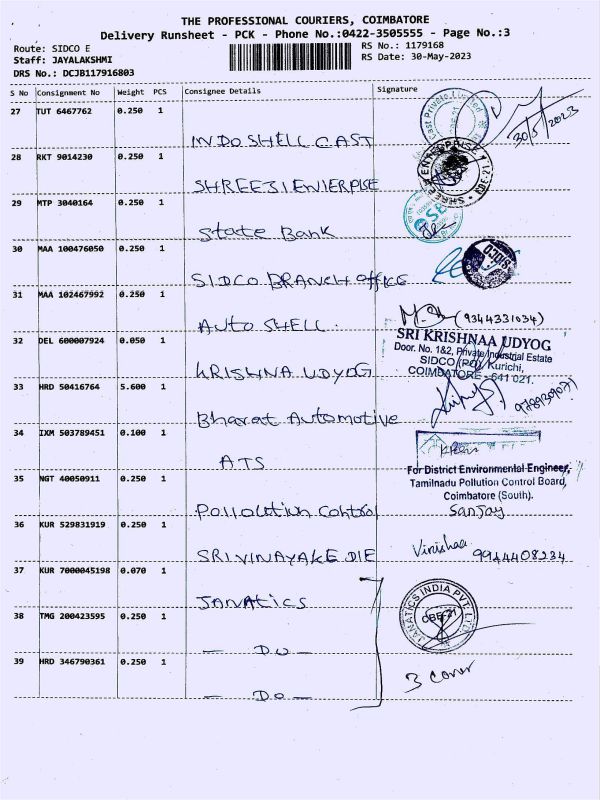 THE PROFESSIONAL COURIERS, COIMBATORE
Delivery Runsheet - PCK - Phone No.:0422-3505555 - Page No.:3
Route: SIDCO E
RS No.: 1179168
Staff: JAYALAKSHMI
RS Date: 30-May-2023
DRS No.: DCJB117916803
S No Consignment No Weight PCS Consignee Details Signature
27 TUT 6467762 0.250 1
30/5/2023
INDO SHELL CAST
28 RKT 9014230 0.250 1
SHREEJI ENTERPISE
29 MTP 3040164 0.250 1
State Bank
30 MAA 100476050 0.250 1
SIDCO
SIDCO BRANCH OFFICE
31 MAA 102467992 0.250 1
(9344331034)
Auto SHELL.
SRI KRISHNAA UDYOG
32 DEL 600007924 0.050 1
Door. No. 1&2, Private Industrial Estate
SIDCO (PO) Kurichi,
COIMBATORE - 641 021.
KRISHNA UDYOG
33 HRD 50416764 5.600 1
Bharat Automotive
34 IXM 503789451 0.100 1
ATS
For District Environmental Engineer,
35 NGT 40050911 0.250 1
Tamilnadu Pollution Control Board,
Coimbatore (South).
Pollution Control
Sanjay
36 KUR 529831919 0.250 1
SRIVINAYAKE DIE
Vinishaa 9944408234
37 KUR 7000045198 0.070 1
JANATICS
JANATICS INDIA PVT. LTD
CBE-21
38 TMG 200423595 0.250 1
— Do —
39 HRD 346790361 0.250 1
3 cover
— Do —